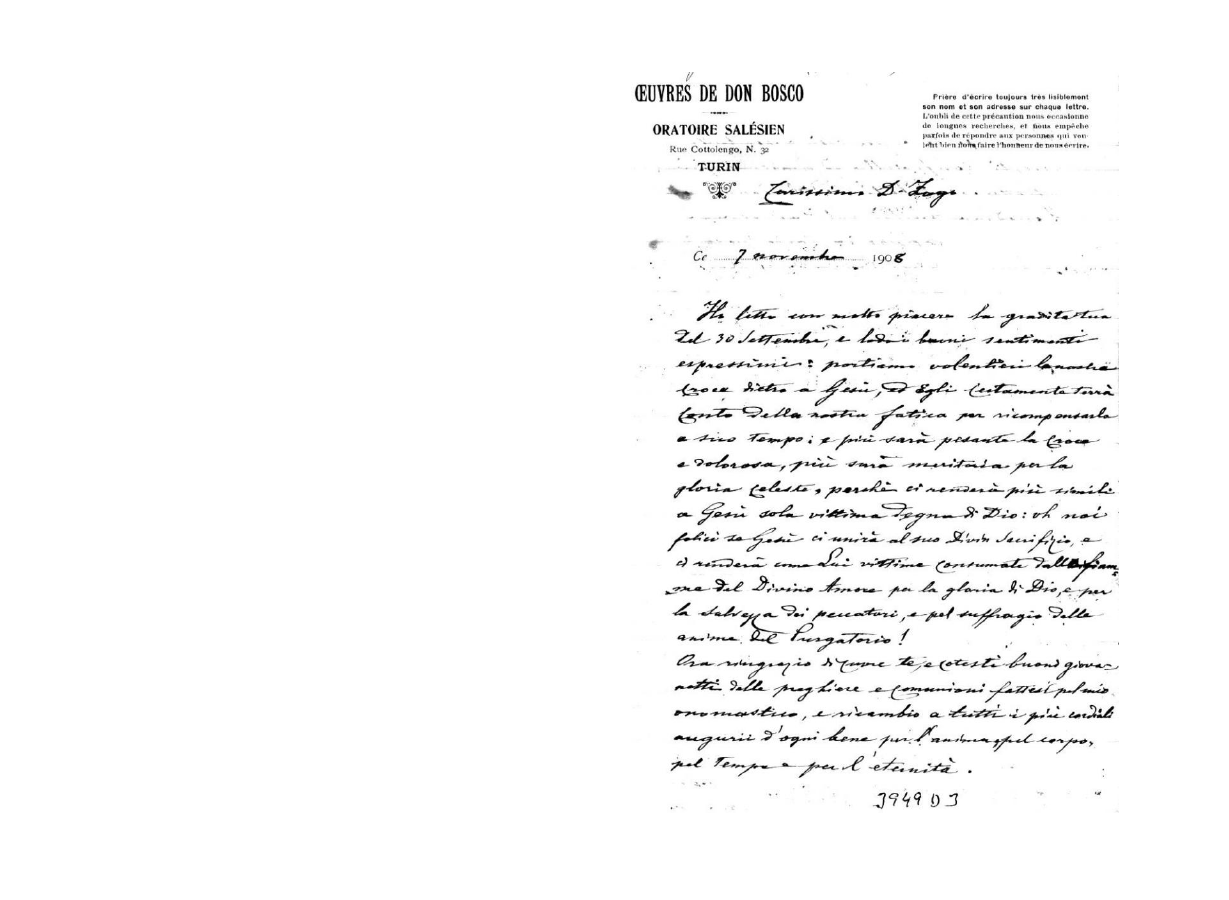 ŒUVRES DE DON BOSCO
ORATOIRE SALÉSIEN
Rue Cottolengo, N. 32
TURIN
Prière d'écrire toujours très lisiblement
son nom et son adresse sur chaque lettre.
L'oubli de cette précaution nous occasionne
de longues recherches, et nous empêche
parfois de répondre aux personnes qui veu-
lent bien nous faire l'honneur de nous écrire.
Carissimo D.
Ce 7 novembre 1908
Ho letto con molto piacere la gradita tua
del 30 Settembre, e lodo i buoni sentimenti
espressimi: portiamo volentieri la nostra
Croce dietro a Gesù, ed Egli Certamente terrà
Conto della nostra fatica per ricompensarla
a suo tempo: e più sarà pesante la Croce
e dolorosa, più sarà meritoria per la
gloria Celeste, perchè ci renderà più simili
a Gesù sola vittima degna di Dio: oh noi
felici se Gesù ci unirà al suo Divin Sacrifizio, e
ci renderà come Lui vittime Consumate dalle fiam
me del Divino Amore per la gloria di Dio, e per
la salvezza dei peccatori, e pel suffragio delle
anime del Purgatorio!
Ora ringrazio di Cuore te, e Cotesti buoni giova-
notti delle preghiere e Comunioni fattesi pel mio
onomastico, e ricambio a tutti i più cordiali
augurii d'ogni bene per l'anima, pel corpo,
pel tempo e per l'eternità.
3949 D 3